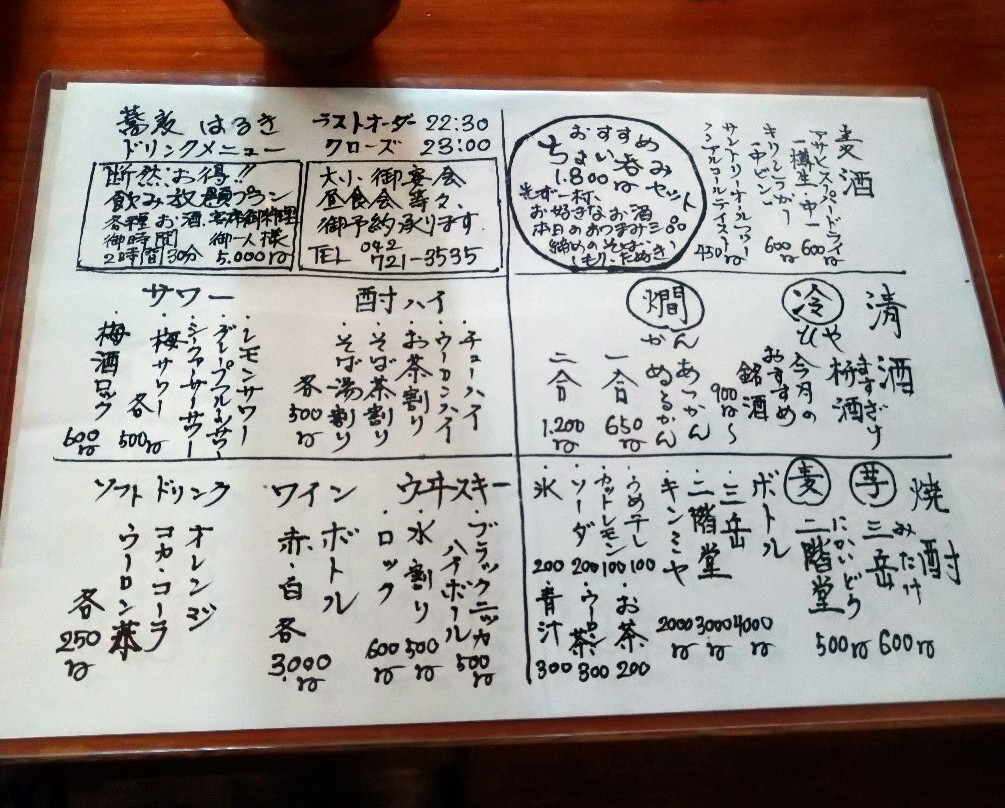 蕎麦 はるき
ドリンクメニュー
ラストオーダー 22:30
クローズ 23:00
断然お得!!
飲み放題プラン
各種お酒
御時間 御一人様
2時間30分 5.000円
大小御宴会
昼食会等々、
御予約承ります
TEL 042
721-3535
おすすめ
ちょい呑みセット
1.800円
先ず一杯、
お好きなお酒
本日のおつまみ三品
締めのそば、
もり、たぬき
麦酒
アサヒスーパードライ
一樽生・中ー
600円
キリンラガー
一中ビンー
600円
サントリーオールフリー
ノンアルコールテイスト
450円
清酒
冷
ひや
ますざけ
枡酒
今月の
おすすめ
銘酒
900円〜
燗
かん
あつかん
ぬるかん
一合
650円
二合
1.200円
酎ハイ
・チューハイ
・ウーロンハイ
・お茶割り
・そば茶割り
・そば湯割り
各500円
サワー
・レモンサワー
・グレープフルーツサワー
・シークァーサーサワー
・梅サワー
各500円
・梅酒ロック
600円
焼酎
芋
みたけ
三岳
600円
麦
にかいどう
二階堂
500円
ボトル
・三岳
4000円
・二階堂
3000円
・キンミヤ
2000円
・うめ干し
100
・カットレモン
100
・ソーダ
200
・氷
200
・お茶
200
・ウーロン茶
300
・青汁
300
ウヰスキー
・ブラックニッカ
ハイボール
500円
・水割り
500円
・ロック
600円
ワイン
ボトル
赤・白 各
3.000円
ソフトドリンク
オレンジ
コカ・コーラ
ウーロン茶
各250円